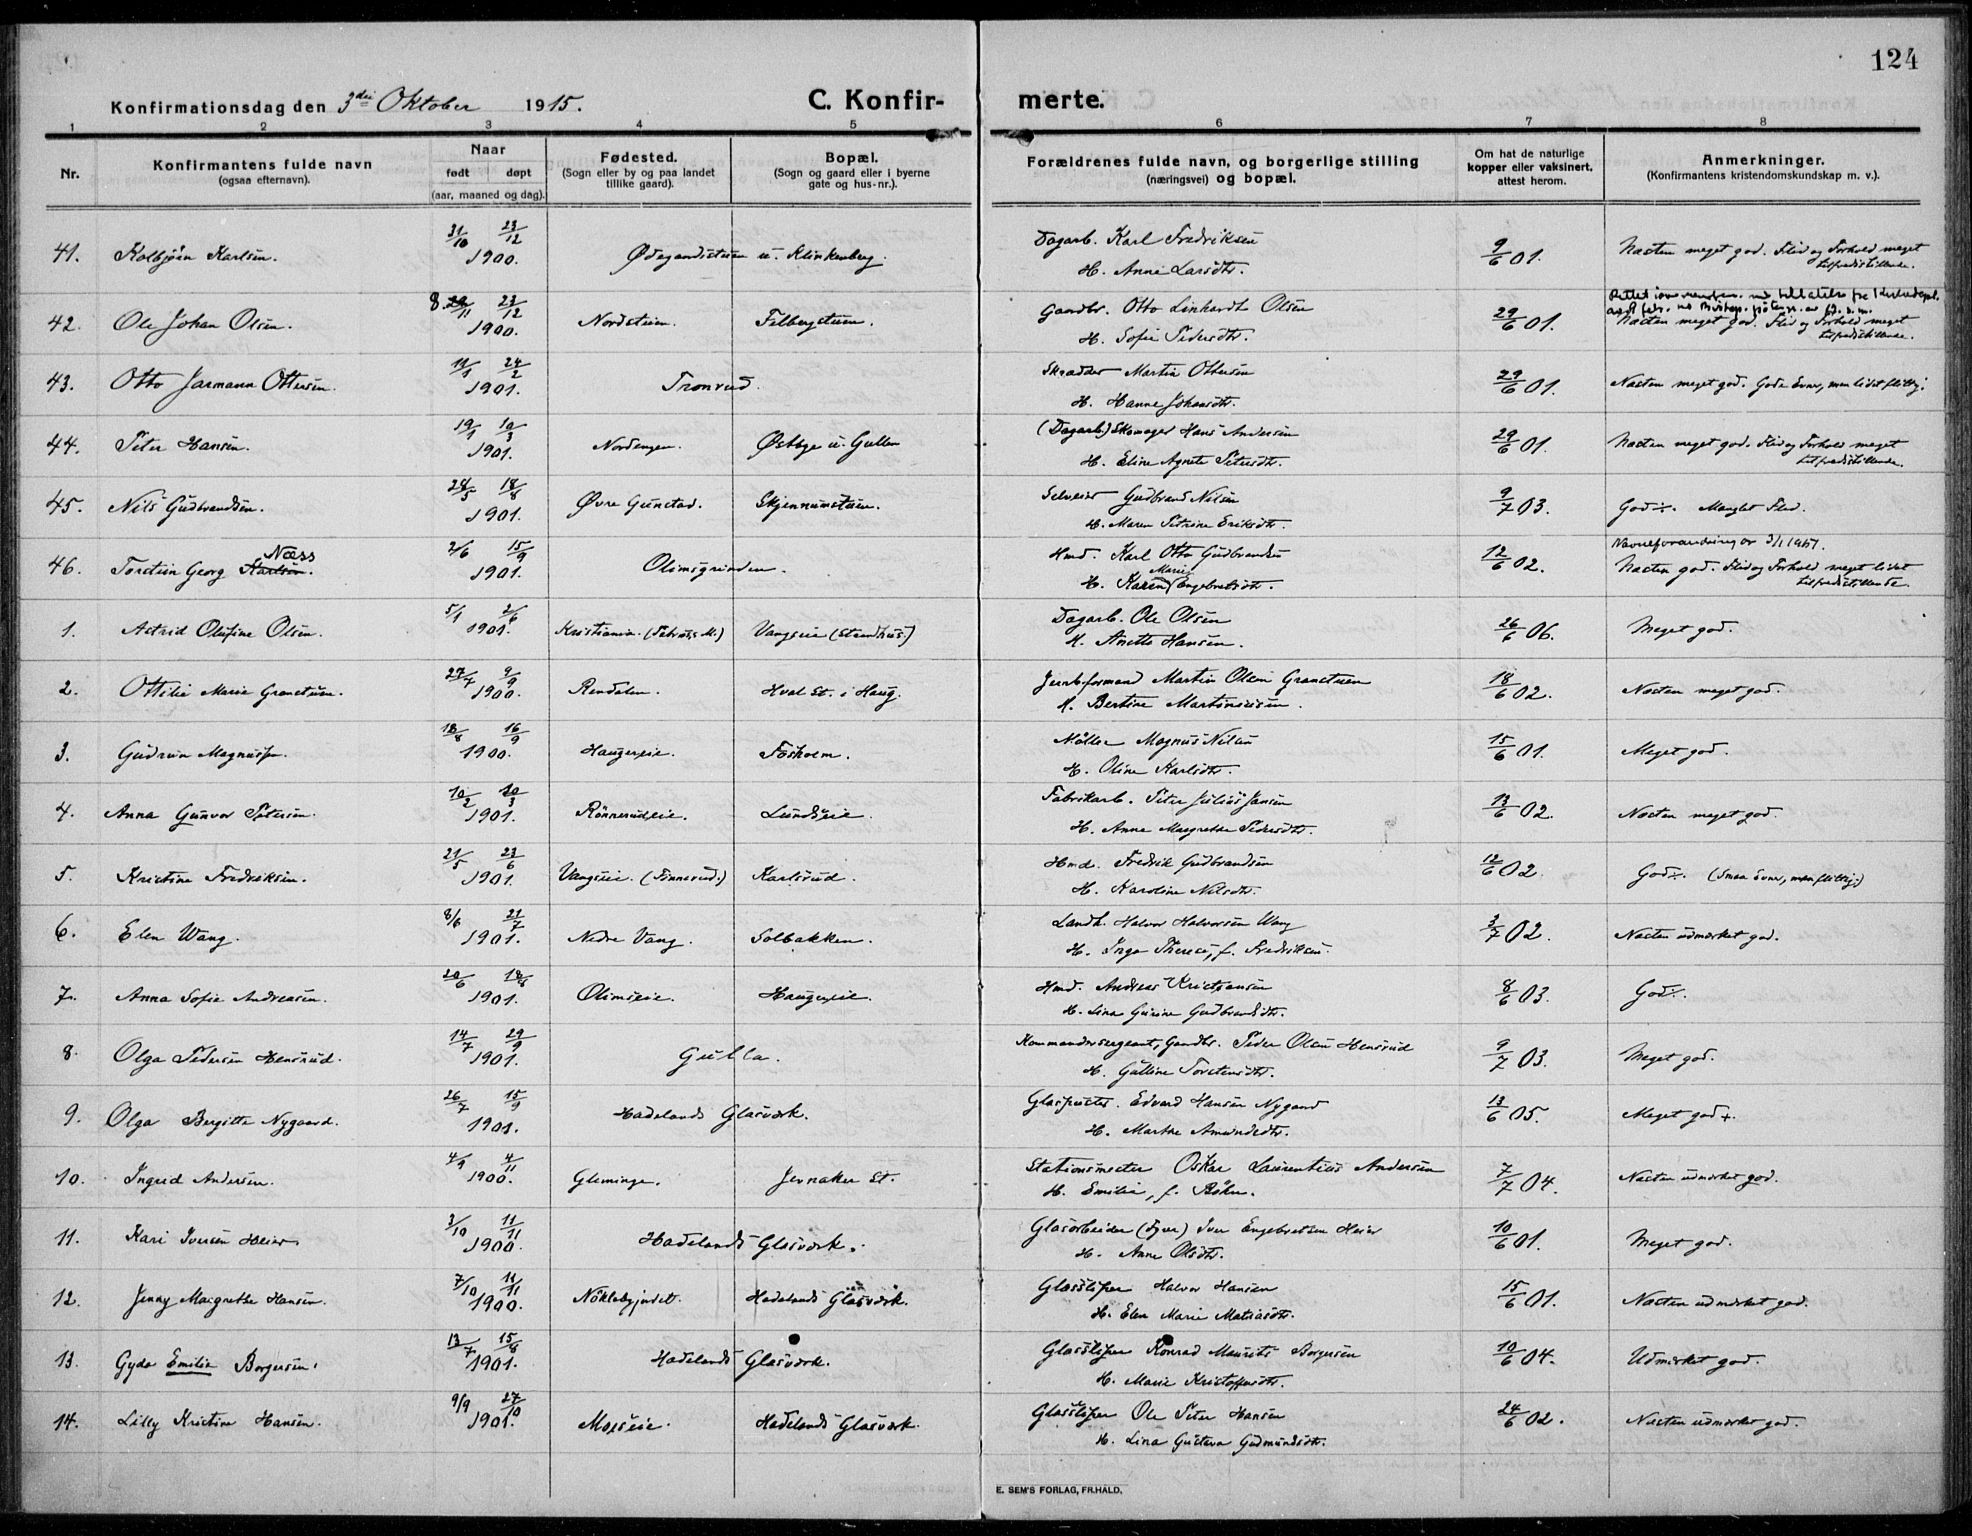 124
Konfirmationsdag den 3die Oktober 1915.
C. Konfir- merte.
1 2 3 4 5 6 7 8
Nr.
Konfirmantens fulde navn
(ogsaa efternavn).
Naar
født døpt
(aar, maaned og dag).
Fødested.
(Sogn eller by og paa landet
tillike gaard).
Bopæl.
(Sogn og gaard eller i byerne
gate og hus-nr.).
Forældrenes fulde navn, og borgerlige stilling
(næringsvei) og bopæl.
Om hat de naturlige
kopper eller vaksinert,
attest herom.
Anmerkninger.
(Konfirmantens kristendomskundskap m. v.).
41. Kolbjørn Karlsen. 31/10 23/12 1900. Ødegaardstuen u. Klinkenberg. Dagarb. Karl Fredriksen
H. Anne Larsdtr. 9/6 01. Næsten meget god. Flid og Forhold meget
tilfredsstillende.
42. Ole Johan Olsen. 8/11 23/12 1900. Nordstuen. Filbergstuen. Gaardbr. Otto Linhardt Olsen
H. Sofie Pedersdtr. 29/6 01.
Næsten meget god. Flid og Forhold meget
tilfredsstillende.
43. Otto Jarmann Ottersen. 11/1 24/2 1901. Tronrud. Skrædder Martin Ottersen
H. Hanne Johansdtr. 29/6 01. Næsten meget god. Gode Evner, men lidet flittig.
44. Peter Hansen. 19/1 10/3 1901. Nordengen. Østbye u. Gullen (Dagarb.) Skomager Hans Andersen
H. Eline Agnete Petersdtr. 29/6 01. Næsten meget god. Flid og Forhold meget
tilfredsstillende.
45. Nils Gudbrandsen. 28/5 18/8 1901. Øvre Gunstad. Skjennumstuen. Selveier Gudbrand Nilsen
H. Maren Petrine Eriksdtr. 9/7 03. God÷. Manglet Flid.
46. Torstein Georg Karlsen. Næss 2/6 15/9 1901. Olimsgrinden. Hmd. Karl Otto Gudbrandsen
H. Karen Marie Engebretsdtr. 12/6 02. Navneforandring av 3/1 1951.
Næsten god. Flid og Forhold meget lidet
tilfredsstillende
1. Astrid Olufine Olsen. 5/1 2/6 1901. Kristiania. Vangseie (Strandhus) Dagarb. Ole Olsen
H. Anette Hansen. 26/6 06. Meget god.
2. Ottilie Marie Granstuen. 27/7 9/9 1900. Rendalen. Hval St. i Haug. Jernbformand Martin Olsen Granstuen
H. Bertine Martinsen. 18/6 02. Næsten meget god.
3. Gudrun Magnussen. 18/8 16/9 1900. Haugerseie. Fosholm. Møller Magnus Nilsen
H. Oline Karlsdtr. 15/6 01. Meget god.
4. Anna Gunvor Petersen. 10/2 10/3 1901. Rønnerudseie. Lundseie. Fabrikarb. Peter Julius Jansen
H. Anne Margrethe Pedersdtr. 13/6 02. Næsten meget god.
5. Kristine Fredriksen. 21/5 23/6 1901. Vangseie. (Finnerud.) Karlsrud. Hmd. Fredrik Gudbrandsen
H. Karoline Nilsdtr. 12/6 02. God÷. (Smaa Evner, men flittig.)
6. Elen Wang. 8/6 21/7 1901. Nedre Vang. Solbakken. Landh. Halvor Halvorsen Wang
H. Inga Therese, f. Fredriksen. 3/7 02. Næsten udmerket god.
7. Anna Sofie Andreasen. 20/6 18/8 1901. Olimseie. Haugerseie. Hmd. Andreas Kristiansen
H. Lina Gurine Gudbrandsdtr. 8/6 03. God÷.
8. Olga Pedersen Hensrud. 14/7 29/9 1901. Gulla. Kommandersergeant, Gaardbr. Peder Olsen Hensrud
H. Gulline Torstensdtr. 9/7 03. Meget god.
9. Olga Bergitte Nygaard. 26/7 15/9 1901. Hadelands Glasværk. Glaspuster. Edvard Hansen Nygaard
H. Marthe Amundsdtr. 13/6 05. Meget god+.
10. Ingrid Andersen. 4/9 4/11 1900. Glemminge. Jevnaker St. Stationsmester Oskar Laurentius Andersen
H. Emilie, f. Bøhn. 7/7 04. Næsten udmerket god.
11. Kari Iversen Heier. 3/10 11/11 1900. Hadelands Glasværk. Glasarbeider (Fyrer) Iver Engebretsen Heier
H. Anne Olsdtr. 10/6 01. Meget god.
12. Jenny Margrethe Hansen. 7/10 11/11 1900. Nøklebyjordet. Hadelands Glasværk. Glassliper Halvor Hansen
H. Elen Marie Matiasdtr. 15/6 01. Næsten udmerket god.
13. Gyda Emilie Borgersen. 13/7 15/8 1901. Hadelands Glasværk. Glassliper Konrad Maurits Borgersen
H. Marie Kristoffersdtr. 10/6 04. Udmerket god.
14. Lilly Kristine Hansen. 9/9 27/10 1901. Moseie. Hadelands Glasværk. Glassliper Ole Peter Hansen
H. Lina Gustava Gudmundsdtr. 24/6 02. Næsten udmerket god.
E. SEM'S FORLAG, FR.HALD.